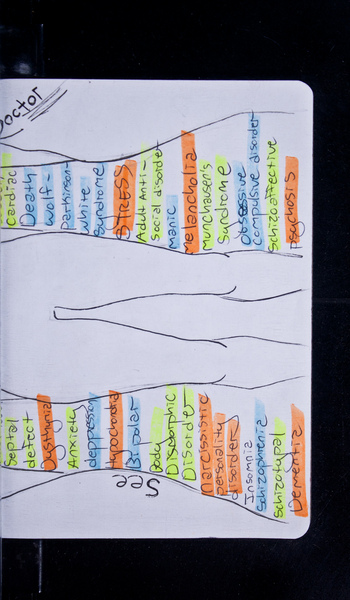 Doctor
cardiac
Death
Wolf-
Parkinson-
White
Syndrome
STRESS
Adult Anti-
Social disorder
manic
melancholia
munchausen's
Syndrome
Obsessive
compulsive disorder
Schizoaffective
Psychosis
Septal
defect
Dysthymia
Anxiety
deppression
Hypochondria
Bipolar
See
Body
Dismorphic
Disorder
Narcissistic
personality
disorder
Insomnia
Schizophrenia
Schizotypal
Dementia